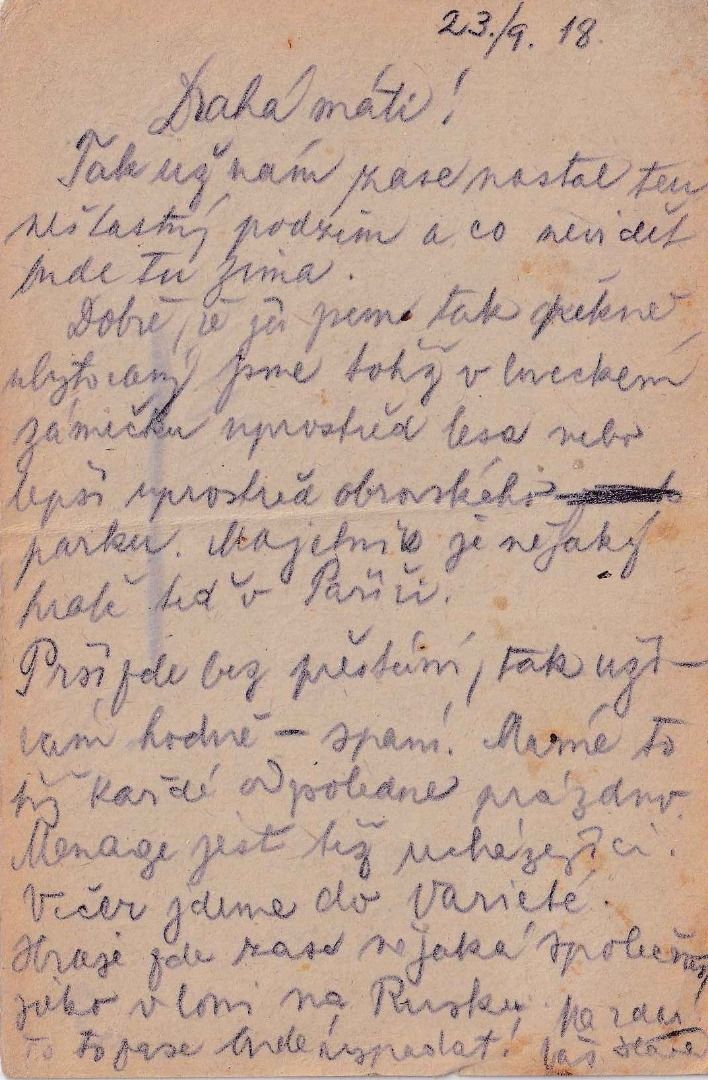 23./9. 18.
Drahá máti!
Tak už nám zase nastal ten
nešťastný podzim a co nevidět
bude tu zima.
Dobře, že já jsem tak pěkně
ubytovaný jsme totiž v loveckém
zámečku uprostřed lesa nebo
lepší uprostřed obrovského
parku. Majitel je nějaký
hrabě teď v Paříži.
Prší zde bez přestání, tak uží-
vám hodně - spaní. Máme to
též každé odpoledne prázdno.
Menage jest též ucházející.
Večer jdeme do Varieté.
Hraje zde zase nějaká společnost
jako vloni na Rusku.
to to zase bude vypadat! Na zdar!
Váš